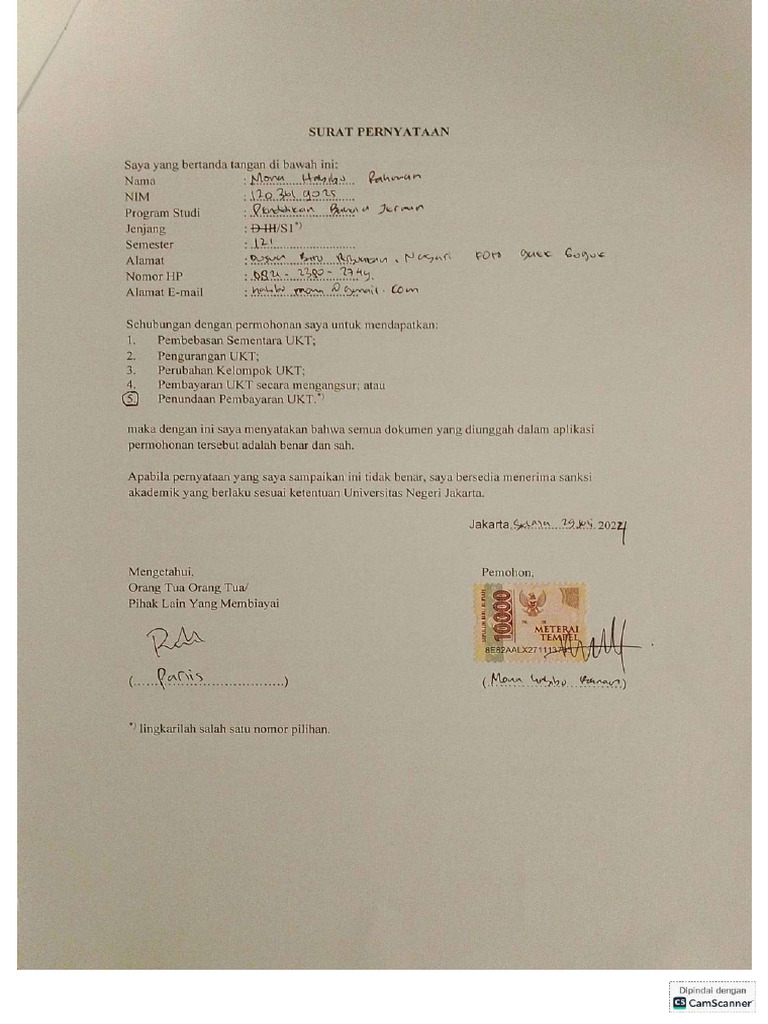 SURAT PERNYATAAN
Saya yang bertanda tangan di bawah ini:
Nama : Mona Habibu Rahman
NIM : 1203619025
Program Studi : Pendidikan Bahasa Jerman
Jenjang : D III/S1*)
Semester : 121
Alamat : Dusun Baru, Nagari
Nomor HP : 0821-2380-2744
Alamat E-mail : @gmail.com
Sehubungan dengan permohonan saya untuk mendapatkan:
1. Pembebasan Sementara UKT;
2. Pengurangan UKT;
3. Perubahan Kelompok UKT;
4. Pembayaran UKT secara mengangsur; atau
5. Penundaan Pembayaran UKT.*)
maka dengan ini saya menyatakan bahwa semua dokumen yang diunggah dalam aplikasi
permohonan tersebut adalah benar dan sah.
Apabila pernyataan yang saya sampaikan ini tidak benar, saya bersedia menerima sanksi
akademik yang berlaku sesuai ketentuan Universitas Negeri Jakarta.
Jakarta, Selasa 29 Juli 2024
Mengetahui,
Orang Tua Orang Tua/
Pihak Lain Yang Membiayai
Pemohon,
10000
METERAI
TEMPEL
(Panis)
(Mona Habibu Rahman)
*) lingkarilah salah satu nomor pilihan.
Dipindai dengan
CS CamScanner